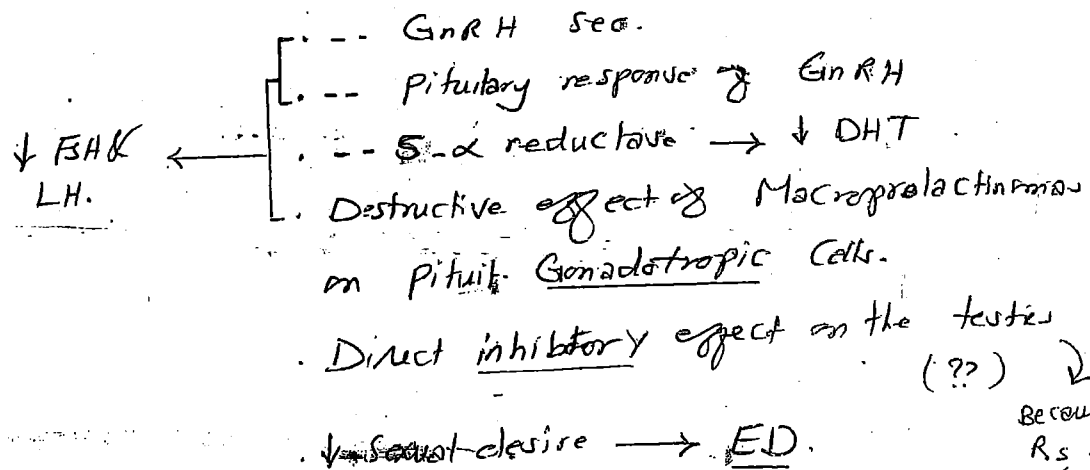 . -- GnRH sec.
. -- Pituitary response of GnRH
↓ FSH & ← . -- 5-α reductase → ↓ DHT.
LH. . Destructive effect of Macroprolactinomas
on Pituit. Gonadotropic Cells.
. Direct inhibitory effect on the testies
(??)
Becau
Rs
. ↓ Sexual desire → ED.